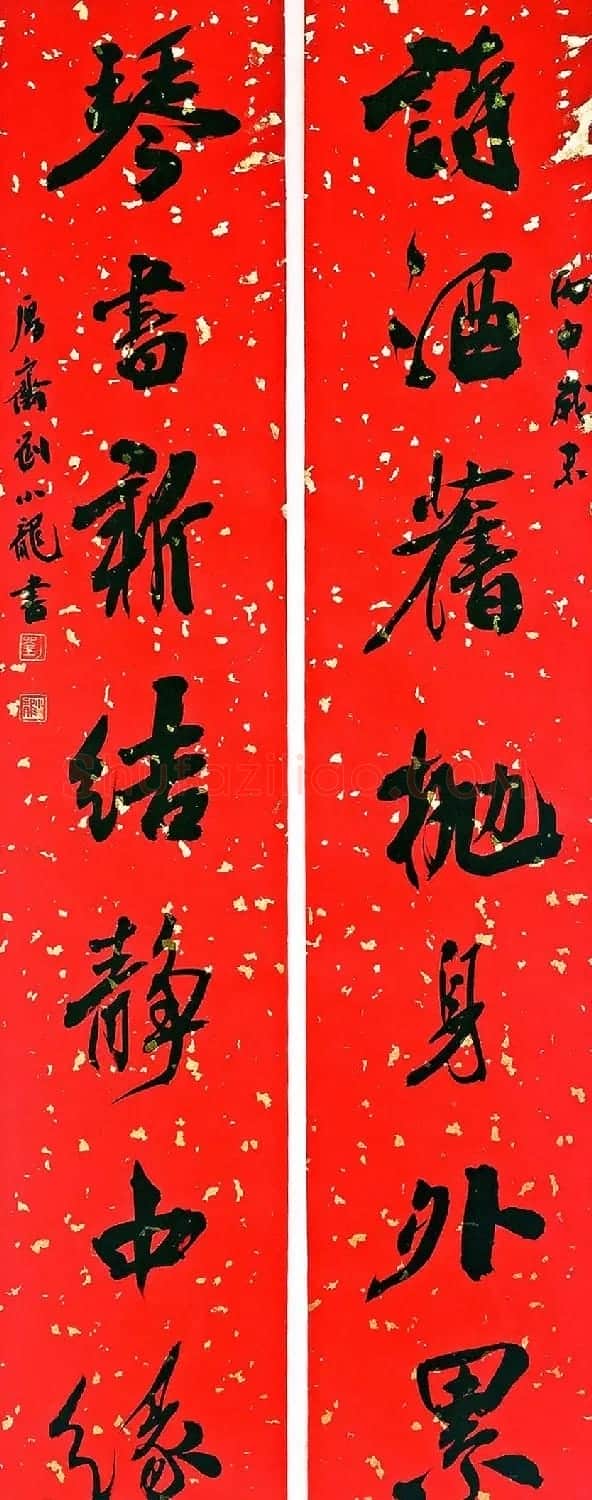 詩酒舊抛身外累
丙申歲末
琴書新結静中緣
厚齋劉小龍書
Shufaziliao.COM